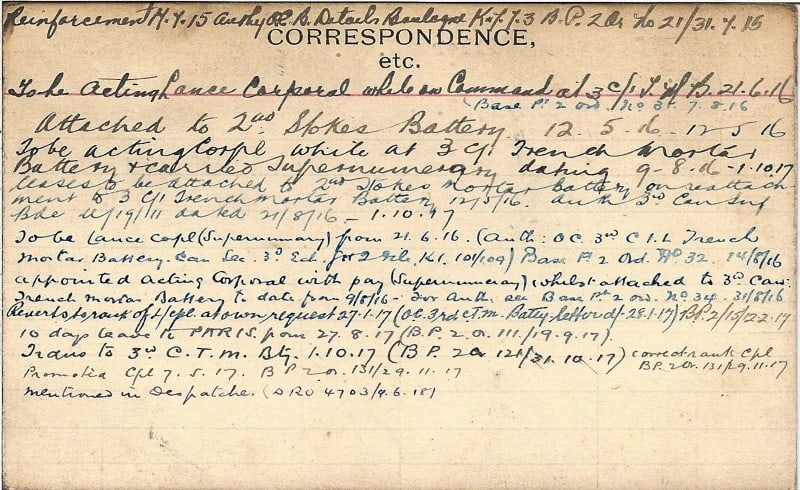 Reinforcement 15 Authy O.C. B. Details Boulogne K.7.7.3 B.P. 2 Or No 21/31.7.15
CORRESPONDENCE,
etc.
To be Acting Lance Corporal while on Command at 3 C/I T.M.B. 21.6.16
Base Pt 2 ord. No 31. 7.8.16
Attached to 2nd Stokes Battery 12.5.16. 12 5 16
To be acting Corpl while at 3 C/I Trench Mortar
Battery & carried Supernumerary dating 9-8-16 - 1.10.17
ceases to be attached to 2nd Stokes Mortar Battery on reattach
ment to 3 C/I Trench Mortar Battery 12/5/16. Auth 3rd Can Inf
Bde dated 21/8/16 - 1.10.17
To be Lance corpl (Supernumary) from 21.6.16. (Auth: O.C. 3rd C.I.L Trench
Mortar Battery. Can Sec. 3rd Ech. for 2 file, K1. 101/109) Base Pt 2 Ord. No 32. 14/8/16
appointed Acting Corporal with pay (Supernumeray) whilst attached to 3rd Can.
Trench mortar Battery to date from 9/8/16 - For Auth. see Base Pt 2 ord. No 34. 31/8/16
Reverts to rank of L/Cpl. at own request 27-1-17 (O.C. 3rd C.T.M. Batty letter d/- 28-1-17) BP.2/15/22.17
10 days leave to PARIS. from 27.8.17 (B.P. 2 o. 111/19.9.17).
Trans to 3rd C.T.M. Bty. 1.10.17 (B.P. 2 o 121/31.10.17) correct rank Cpl
BP. 2 o. 131/29.11.17
Promoted Cpl 7.5.17. B P 2 o. 131/29.11.17
mentioned in Despatche. (DRO 4703/9.6.18)